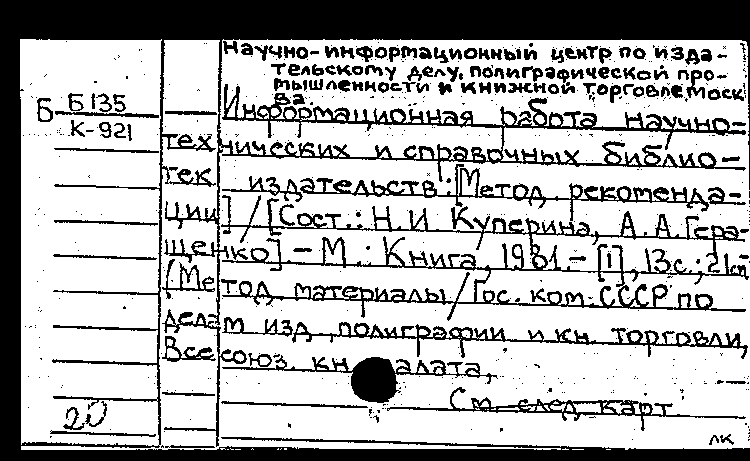 Научно-информационный центр по изда-
тельскому делу, полиграфической про-
мышленности и книжной торговле. Моск
ва.
Б Б135
К-921
Информационная работа научно-
технических и справочных библио-
тек издательств: [Метод. рекоменда-
ции] / [Сост.: Н.И Куперина, А.А.Гера-
щенко]. - М.: Книга, 1981. - [1], 13с.; 21см
(Метод. материалы / Гос. ком. СССР по
делам изд., полиграфии и кн. торговли,
Всесоюз. кн. палата,
См. след. карт.
20
лк